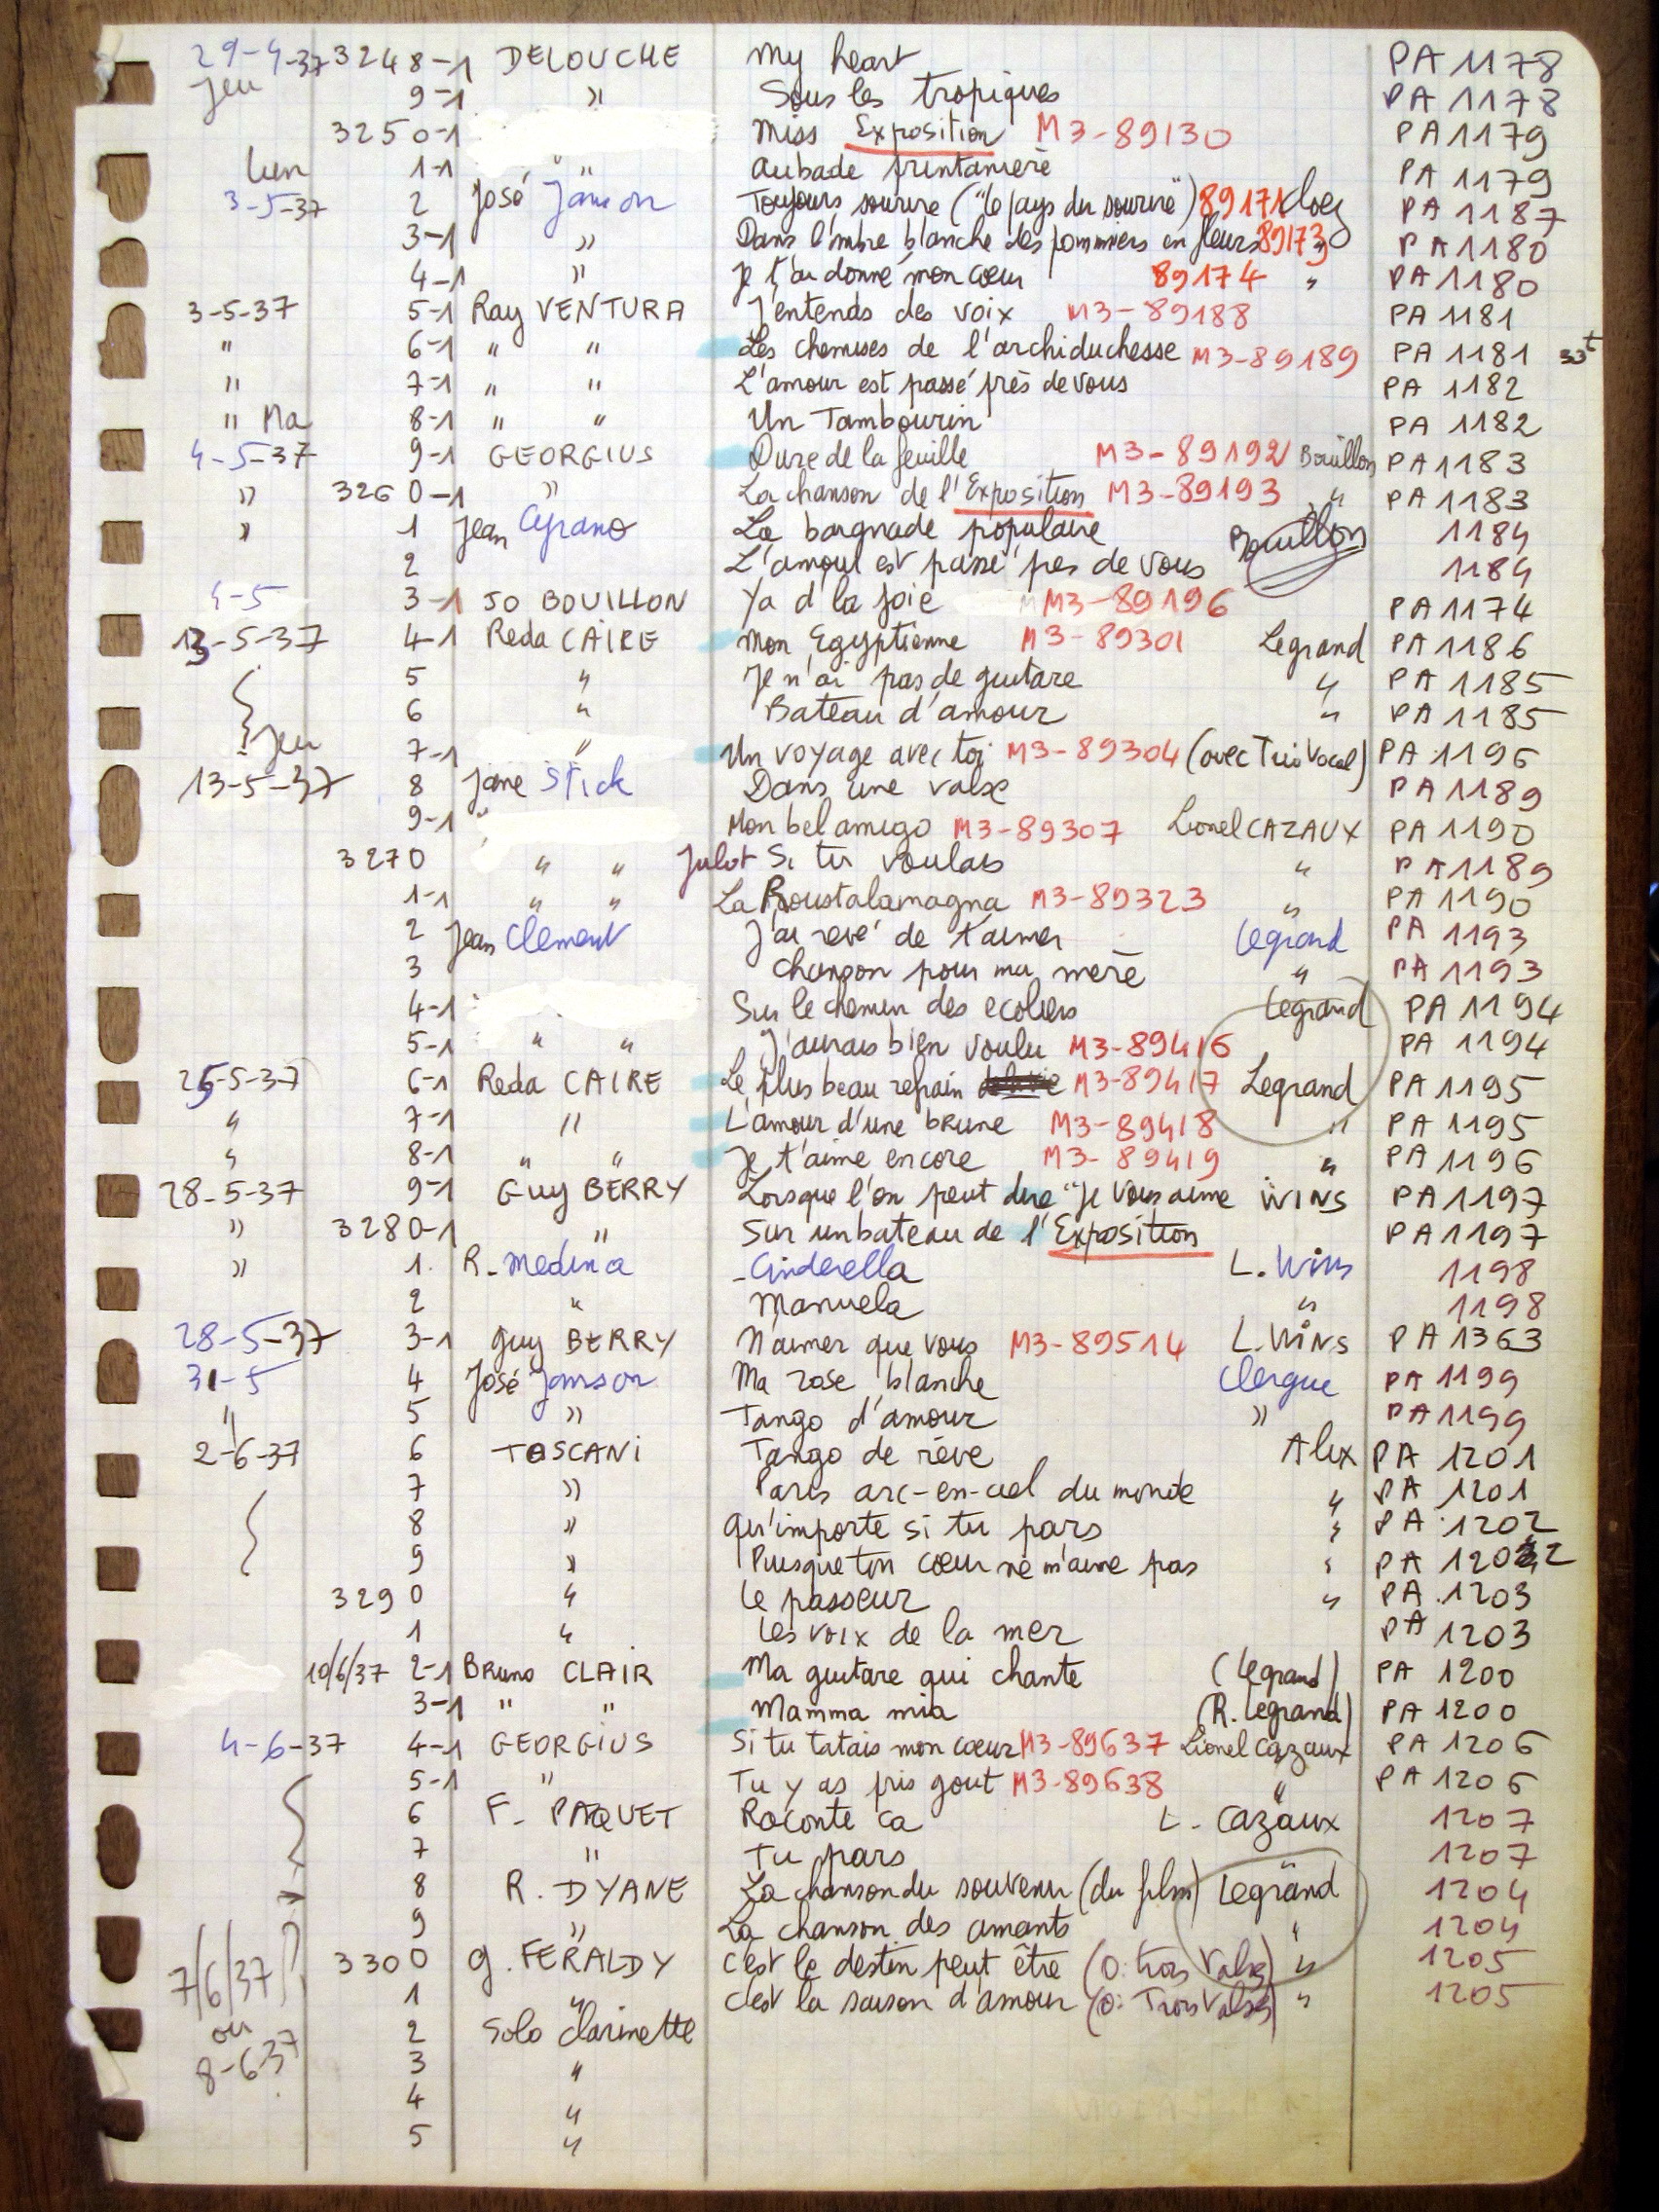 29-4-37 3248-1 DELOUCHE My heart PA 1178
Jeu 9-1 » Sous les tropiques PA 1178
3250-1 Miss Exposition M3-89130 PA 1179
lun 1-1 " Aubade printanière PA 1179
3-5-37 2 José Janson Toujours sourire ("le pays du sourire") 89171 Cloez PA 1187
3-1 » Dans l'ombre blanche des pommiers en fleurs 89173 " PA 1180
4-1 » Je t'ai donné mon cœur 89174 " PA 1180
3-5-37 5-1 Ray VENTURA J'entends des voix M3-89188 PA 1181
" 6-1 " " Les chemises de l'archiduchesse M3-89189 PA 1181 33t
" 7-1 " " L'amour est passé près de vous PA 1182
" Ma 8-1 " " Un Tambourin PA 1182
4-5-37 9-1 GEORGIUS Dure de la feuille M3-89192 Bouillon PA 1183
» 3260-1 » La chanson de l'Exposition M3-89193 " PA 1183
» 1 Jean Cyrano La baignade populaire Bouillon 1184
2 L'amour est passé près de vous 1184
4-5 3-1 JO BOUILLON Ya d'la joie M3-89196 PA 1174
13-5-37 4-1 Reda CAIRE Mon Egyptienne M3-89301 Legrand PA 1186
5 " Je n'ai pas de guitare " PA 1185
6 " Bateau d'amour " PA 1185
Jeu 7-1 " Un voyage avec toi M3-89304 (avec Trio Vocal) PA 1196
13-5-37 8 Jane Stick Dans une valse PA 1189
9-1 " Mon bel amigo M3-89307 Lionel CAZAUX PA 1190
3270 " " Julot Si tu voulais " PA 1189
1-1 " " La Roustalamagna M3-89323 " PA 1190
2 Jean Clement J'ai rêvé de t'aimer Legrand PA 1193
3 Chanson pour ma mère " PA 1193
4-1 Sur le chemin des ecoliers Legrand PA 1194
5-1 " " J'aurais bien voulu M3-89416 PA 1194
25-5-37 6-1 Reda CAIRE Le plus beau refrain de la vie M3-89417 Legrand PA 1195
" 7-1 " L'amour d'une brune M3-89418 " PA 1195
" 8-1 " " Je t'aime encore M3-89419 " PA 1196
28-5-37 9-1 Guy BERRY Lorsque l'on peut dire "Je vous aime WINS PA 1197
» 3280-1 " Sur un bateau de l'Exposition PA 1197
» 1. R. Medina Cinderella L. Wins 1198
2 " Manuela " 1198
28-5-37 3-1 Guy BERRY N'aimer que vous M3-89514 L. WINS PA 1363
31-5 4 José Janson Ma rose blanche Clergue PA 1199
" 5 » Tango d'amour » PA 1199
2-6-37 6 TOSCANI Tango de rêve Alix PA 1201
7 » Paris arc-en-ciel du monde " PA 1201
8 » Qu'importe si tu pars " PA 1202
9 » Puisque ton cœur ne m'aime pas " PA 1202
3290 " Le passeur " PA 1203
1 " Les voix de la mer PA 1203
10/6/37 2-1 Bruno CLAIR Ma guitare qui chante (Legrand) PA 1200
3-1 " " Mamma mia (R. Legrand) PA 1200
4-6-37 4-1 GEORGIUS Si tu tatais mon cœur M3-89637 Lionel Cazaux PA 1206
5-1 " Tu y as pris gout M3-89638 " PA 1206
6 F. PAQUET Raconte ca L. Cazaux 1207
7 " Tu pars " 1207
8 R. DYANE La chanson du souvenir (du film) Legrand 1204
9 » La chanson des amants " 1204
7/6/37 3300 G. FERALDY C'est le destin peut être (O: trois Valses) " 1205
1 " C'est la saison d'amour (O: Trois Valses) " 1205
ou 2 Solo clarinette
8-6-37 3 "
4 "
5 "